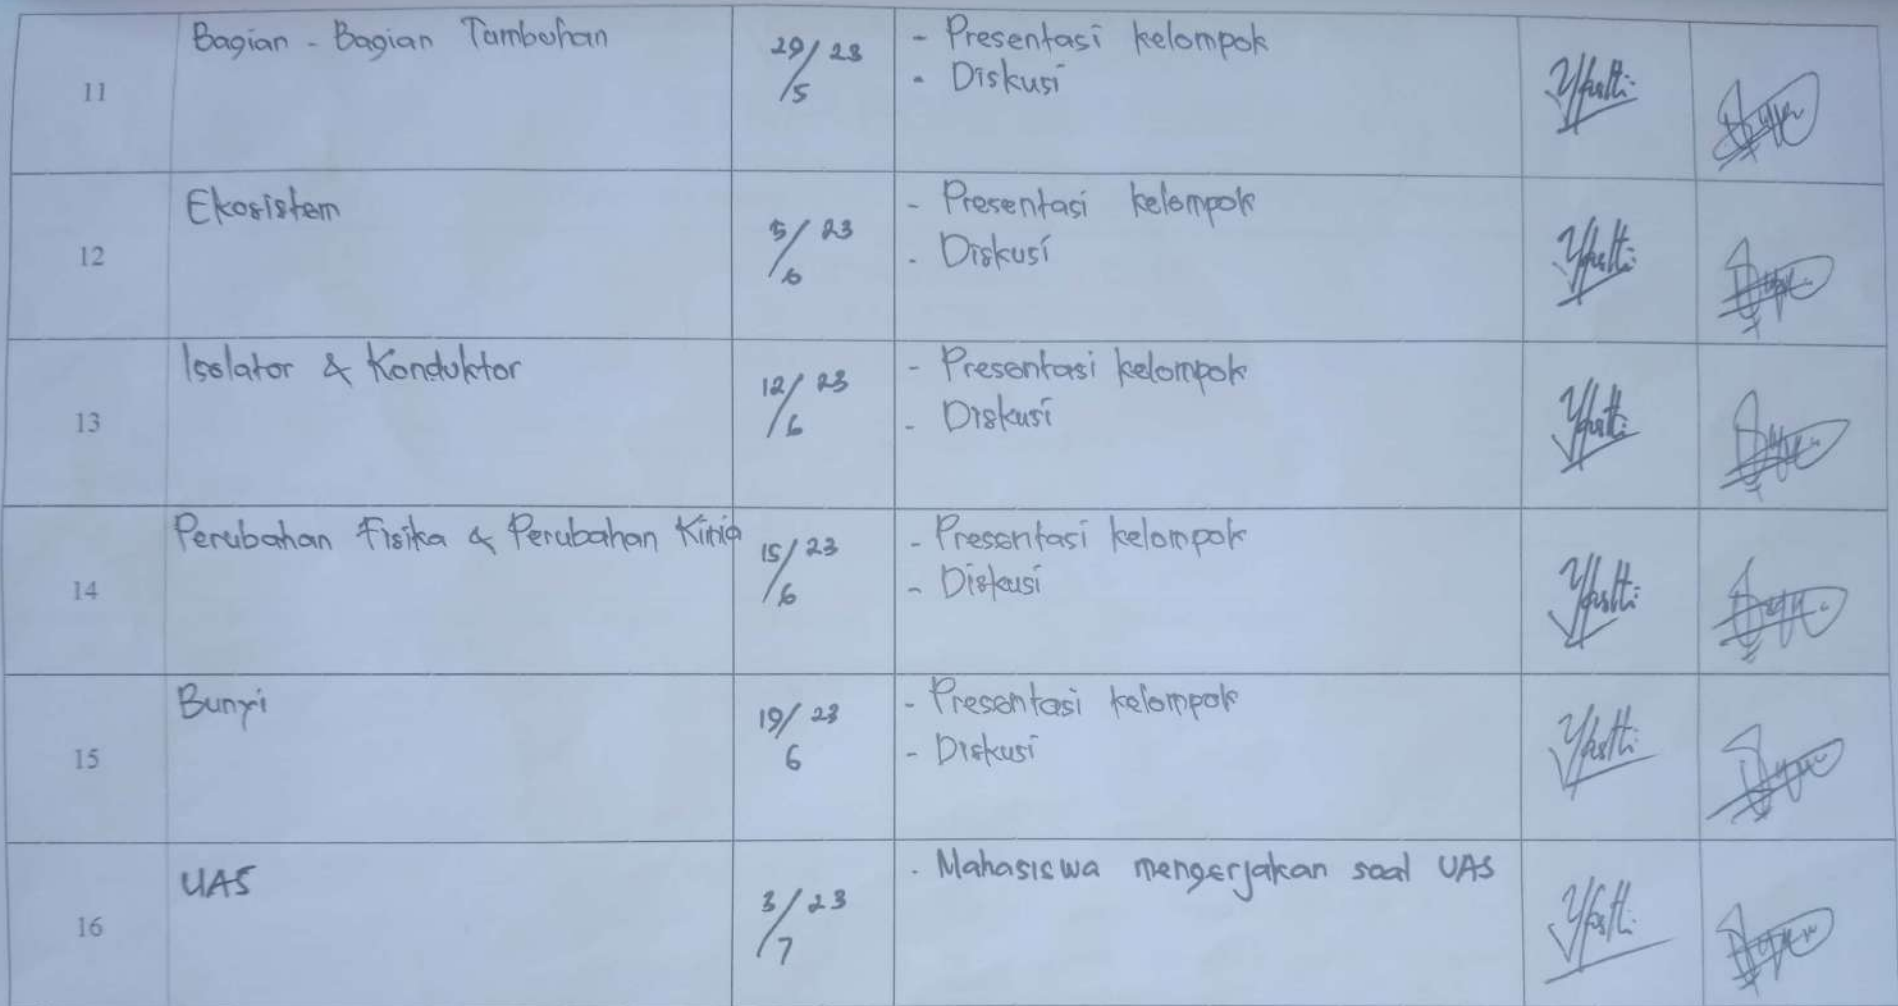 11
Bagian - Bagian Tumbuhan
29/5 23
- Presentasi kelompok
- Diskusi
12
Ekosistem
5/6 23
- Presentasi kelompok
- Diskusi
13
Isolator & Konduktor
12/6 23
- Presentasi kelompok
- Diskusi
14
Perubahan Fisika & Perubahan Kimia
15/6 23
- Presentasi kelompok
- Diskusi
15
Bunyi
19/6 23
- Presentasi kelompok
- Diskusi
16
UAS
3/7 23
- Mahasiswa mengerjakan soal UAS